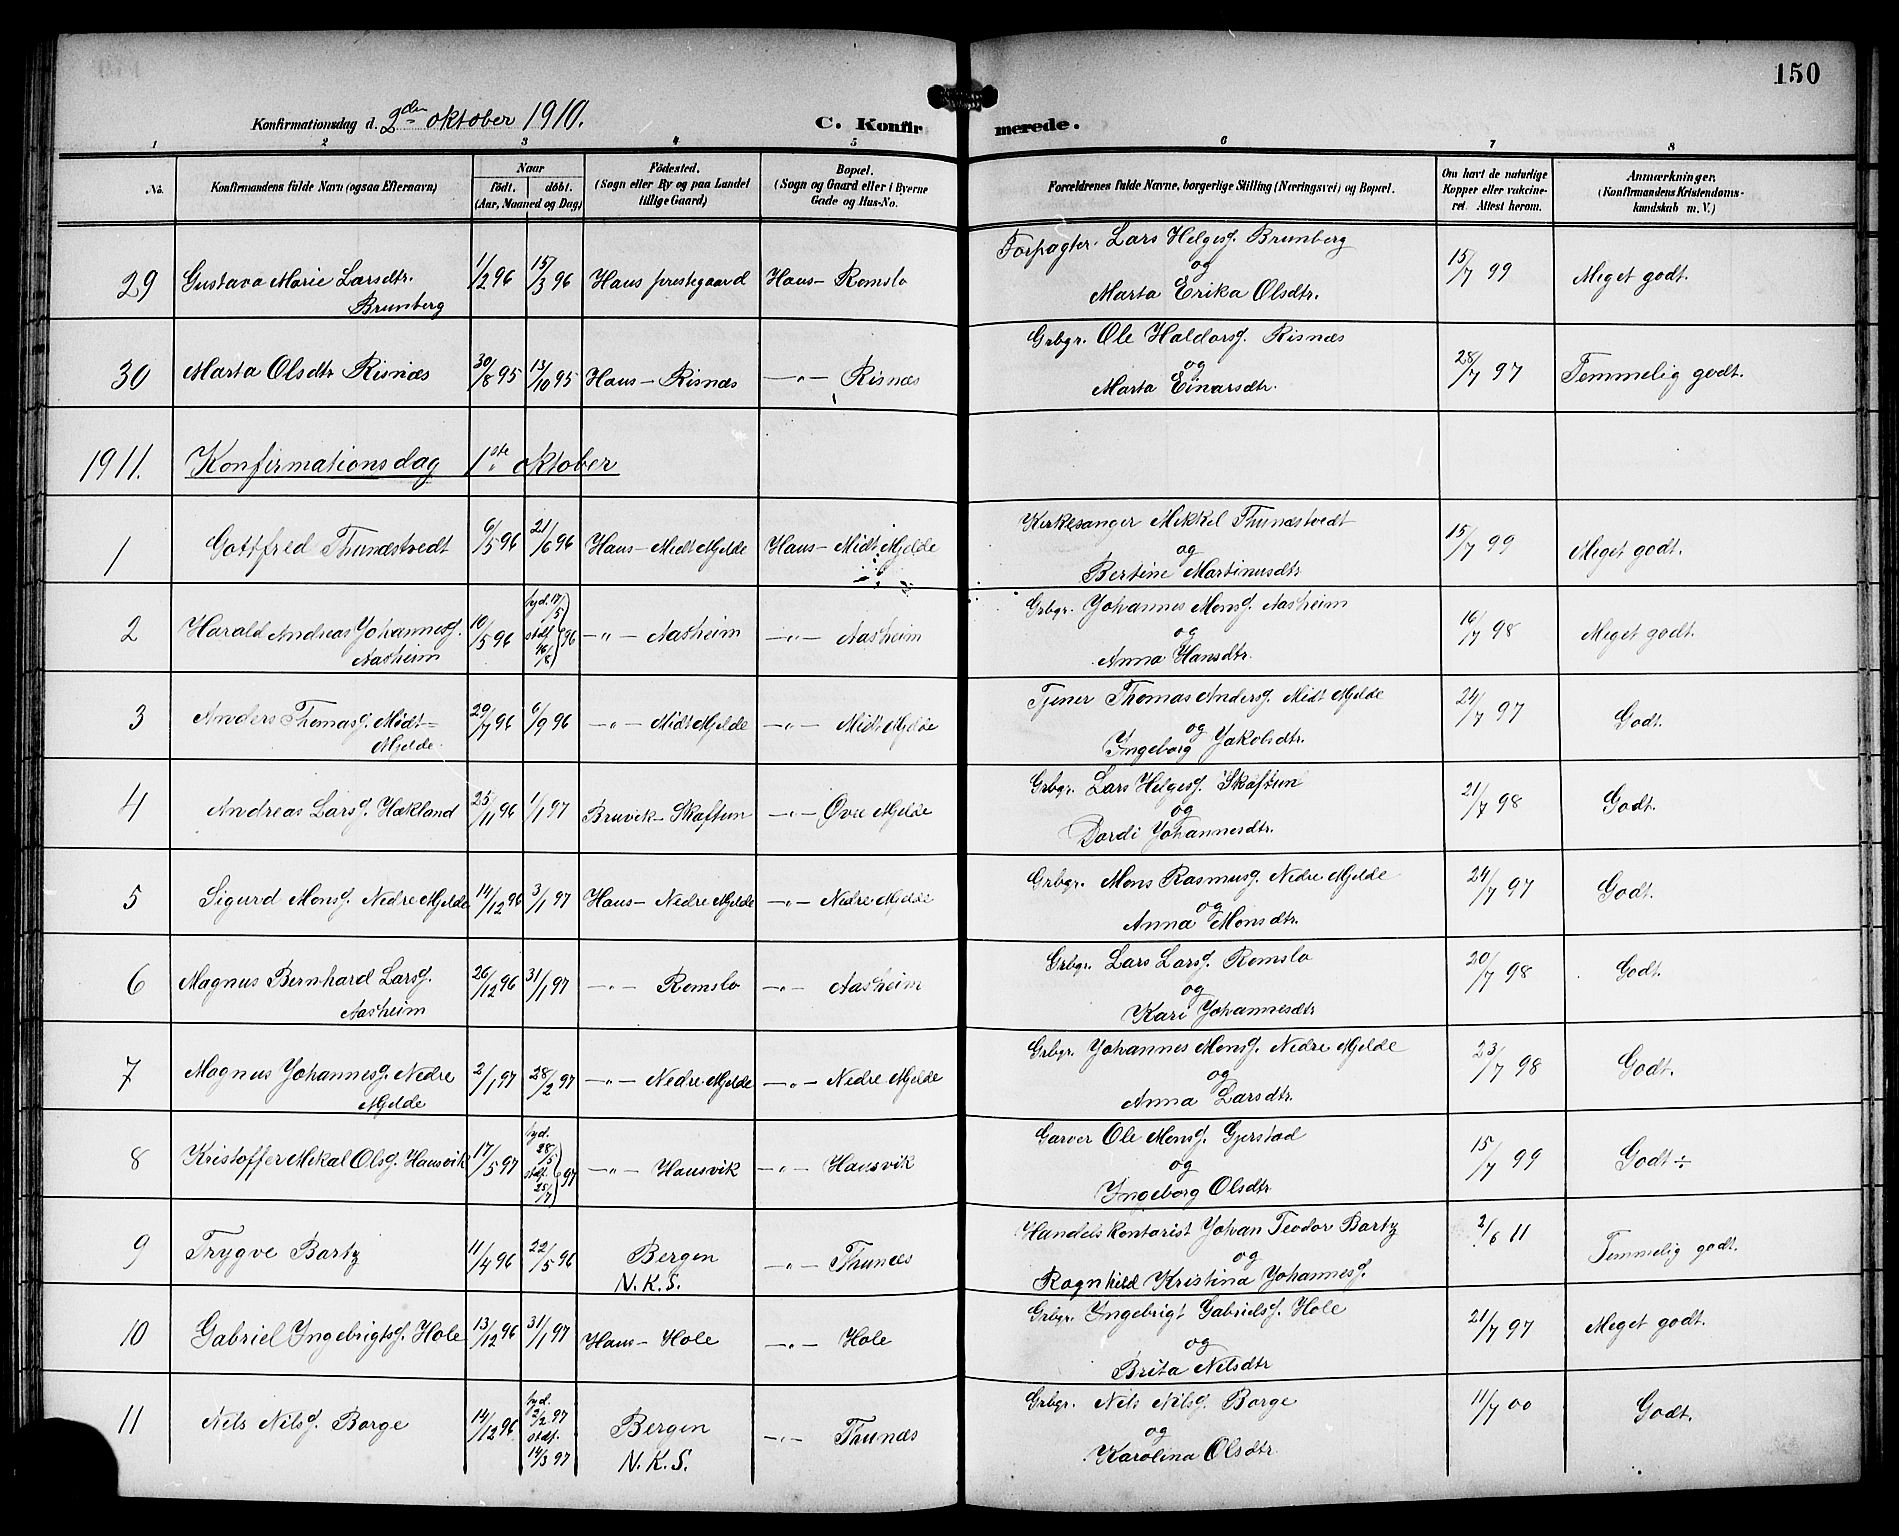 150
Konfirmationsdag d. 2den oktober 1910. C. Konfirmerede.
1 2 3 4 5 6 7 8
No. Konfirmandens fulde Navn (ogsaa Efternavn) Naar födt. döbt. (Aar, Maaned og Dag) Födested. (Sogn eller By og paa Landet tillige Gaard) Bopæl. (Sogn og Gaard eller i Byerne Gade og Hus-No. Forældrenes fulde Navne, borgerlige Stilling (Næringsvei) og Bopæl. Om havt de naturlige Kopper eller vakcineret. Attest herom. Anmærkninger. (Konfirmandens Kristendomskundskab m. V.)
29 Gustava Marie Larsdtr. Brunberg 1/2 96 15/3 96 Haus prestegaard Haus - Romslo Forpagter. Lars Helgesg. Brunberg og Marta Erika Olsdtr. 15/7 99 Meget godt.
30 Marta Olsdtr Risnæs 30/8 95 13/10 95 Haus - Risnæs -"- Risnæs Grbgr. Ole Haldorsg. Risnæs og Marta Einarsdtr. 28/7 97 Temmelig godt.
1911. Konfirmationsdag 1ste oktober
1 Gottfred Thunæstvedt 6/5 96 21/6 96 Haus - Midt Mjelde Haus - Midt Mjelde Kirkesanger Mikkel Thunæstvedt og Bertine Martinusdtr 15/7 99 Meget godt.
2 Harald Andreas Johannesg. Aasheim 10/5 96 hjd. 17/5 stdf. 16/8 96 -"- Aasheim -"- Aasheim Grbgr. Johannes Monsg. Aasheim og Anna Hansdtr. 16/7 98 Meget godt.
3 Anders Thomasg. Midt= Mjelde. 29/7 96 6/9 96 -"- Midt Mjelde -"- Midt Mjelde Tjener Thomas Andersg. Midt Mjelde og Ingeborg Jakobsdtr. 24/7 97 Godt.
4 Andreas Larsg. Hækland 25/11 96 1/1 97 Bruvik - Skaftun -"- Øvre Mjelde Grbgr. Lars Helgesg. Skaftun og Dordi Johannesdtr. 21/7 98 Godt.
5 Sigurd Monsg. Nedre Mjelde 14/12 96 3/1 97 Haus - Nedre Mjelde -"- Nedre Mjelde Grbgr. Mons Rasmusg. Nedre Mjelde og Anna Monsdtr. 24/7 97 Godt.
6 Magnus Bernhard Larsg. Aasheim 26/12 96 31/1 97 -"- Romslo -"- Aasheim Grbgr. Lars Larsg. Romslo og Kari Johannesdtr 20/7 98 Godt.
7 Magnus Johannesg. Nedre Mjelde 2/1 97 28/2 97 -"- Nedre Mjelde -"- Nedre Mjelde Grbgr. Johannes Monsg. Nedre Mjelde og Anna Larsdtr. 23/7 98 Godt.
8 Kristoffer Mikal Olsg. Hausvik 17/5 97 hjd. 28/5 stdf. 25/7 97 -"- Hausvik -"- Hausvik Garver Ole Monsg. Gjerstad og Ingeborg Olsdtr 15/7 99 Godt ÷
9 Trygve Bartz 11/4 96 22/5 96 Bergen N.K.S. -"- Thunæs Handelskontorist Johan Teodor Bartz og Ragnhild Kristina Johannesg. 2/6 11 Temmelig godt.
10 Gabriel Ingebrigtsg. Hole 13/12 96 31/1 97 Haus - Hole -"- Hole Grbgr. Ingebrigt Gabrielsg. Hole og Brita Nilsdtr 21/7 97 Meget godt.
11 Nils Nilsg. Borge 14/12 96 hjd. 2/2 97 stdf. 14/3 97 Bergen N.K.S. -"- Thunæs Grbgr. Nils Nilsg. Borge og Karolina Olsdtr. 11/7 00 Godt.